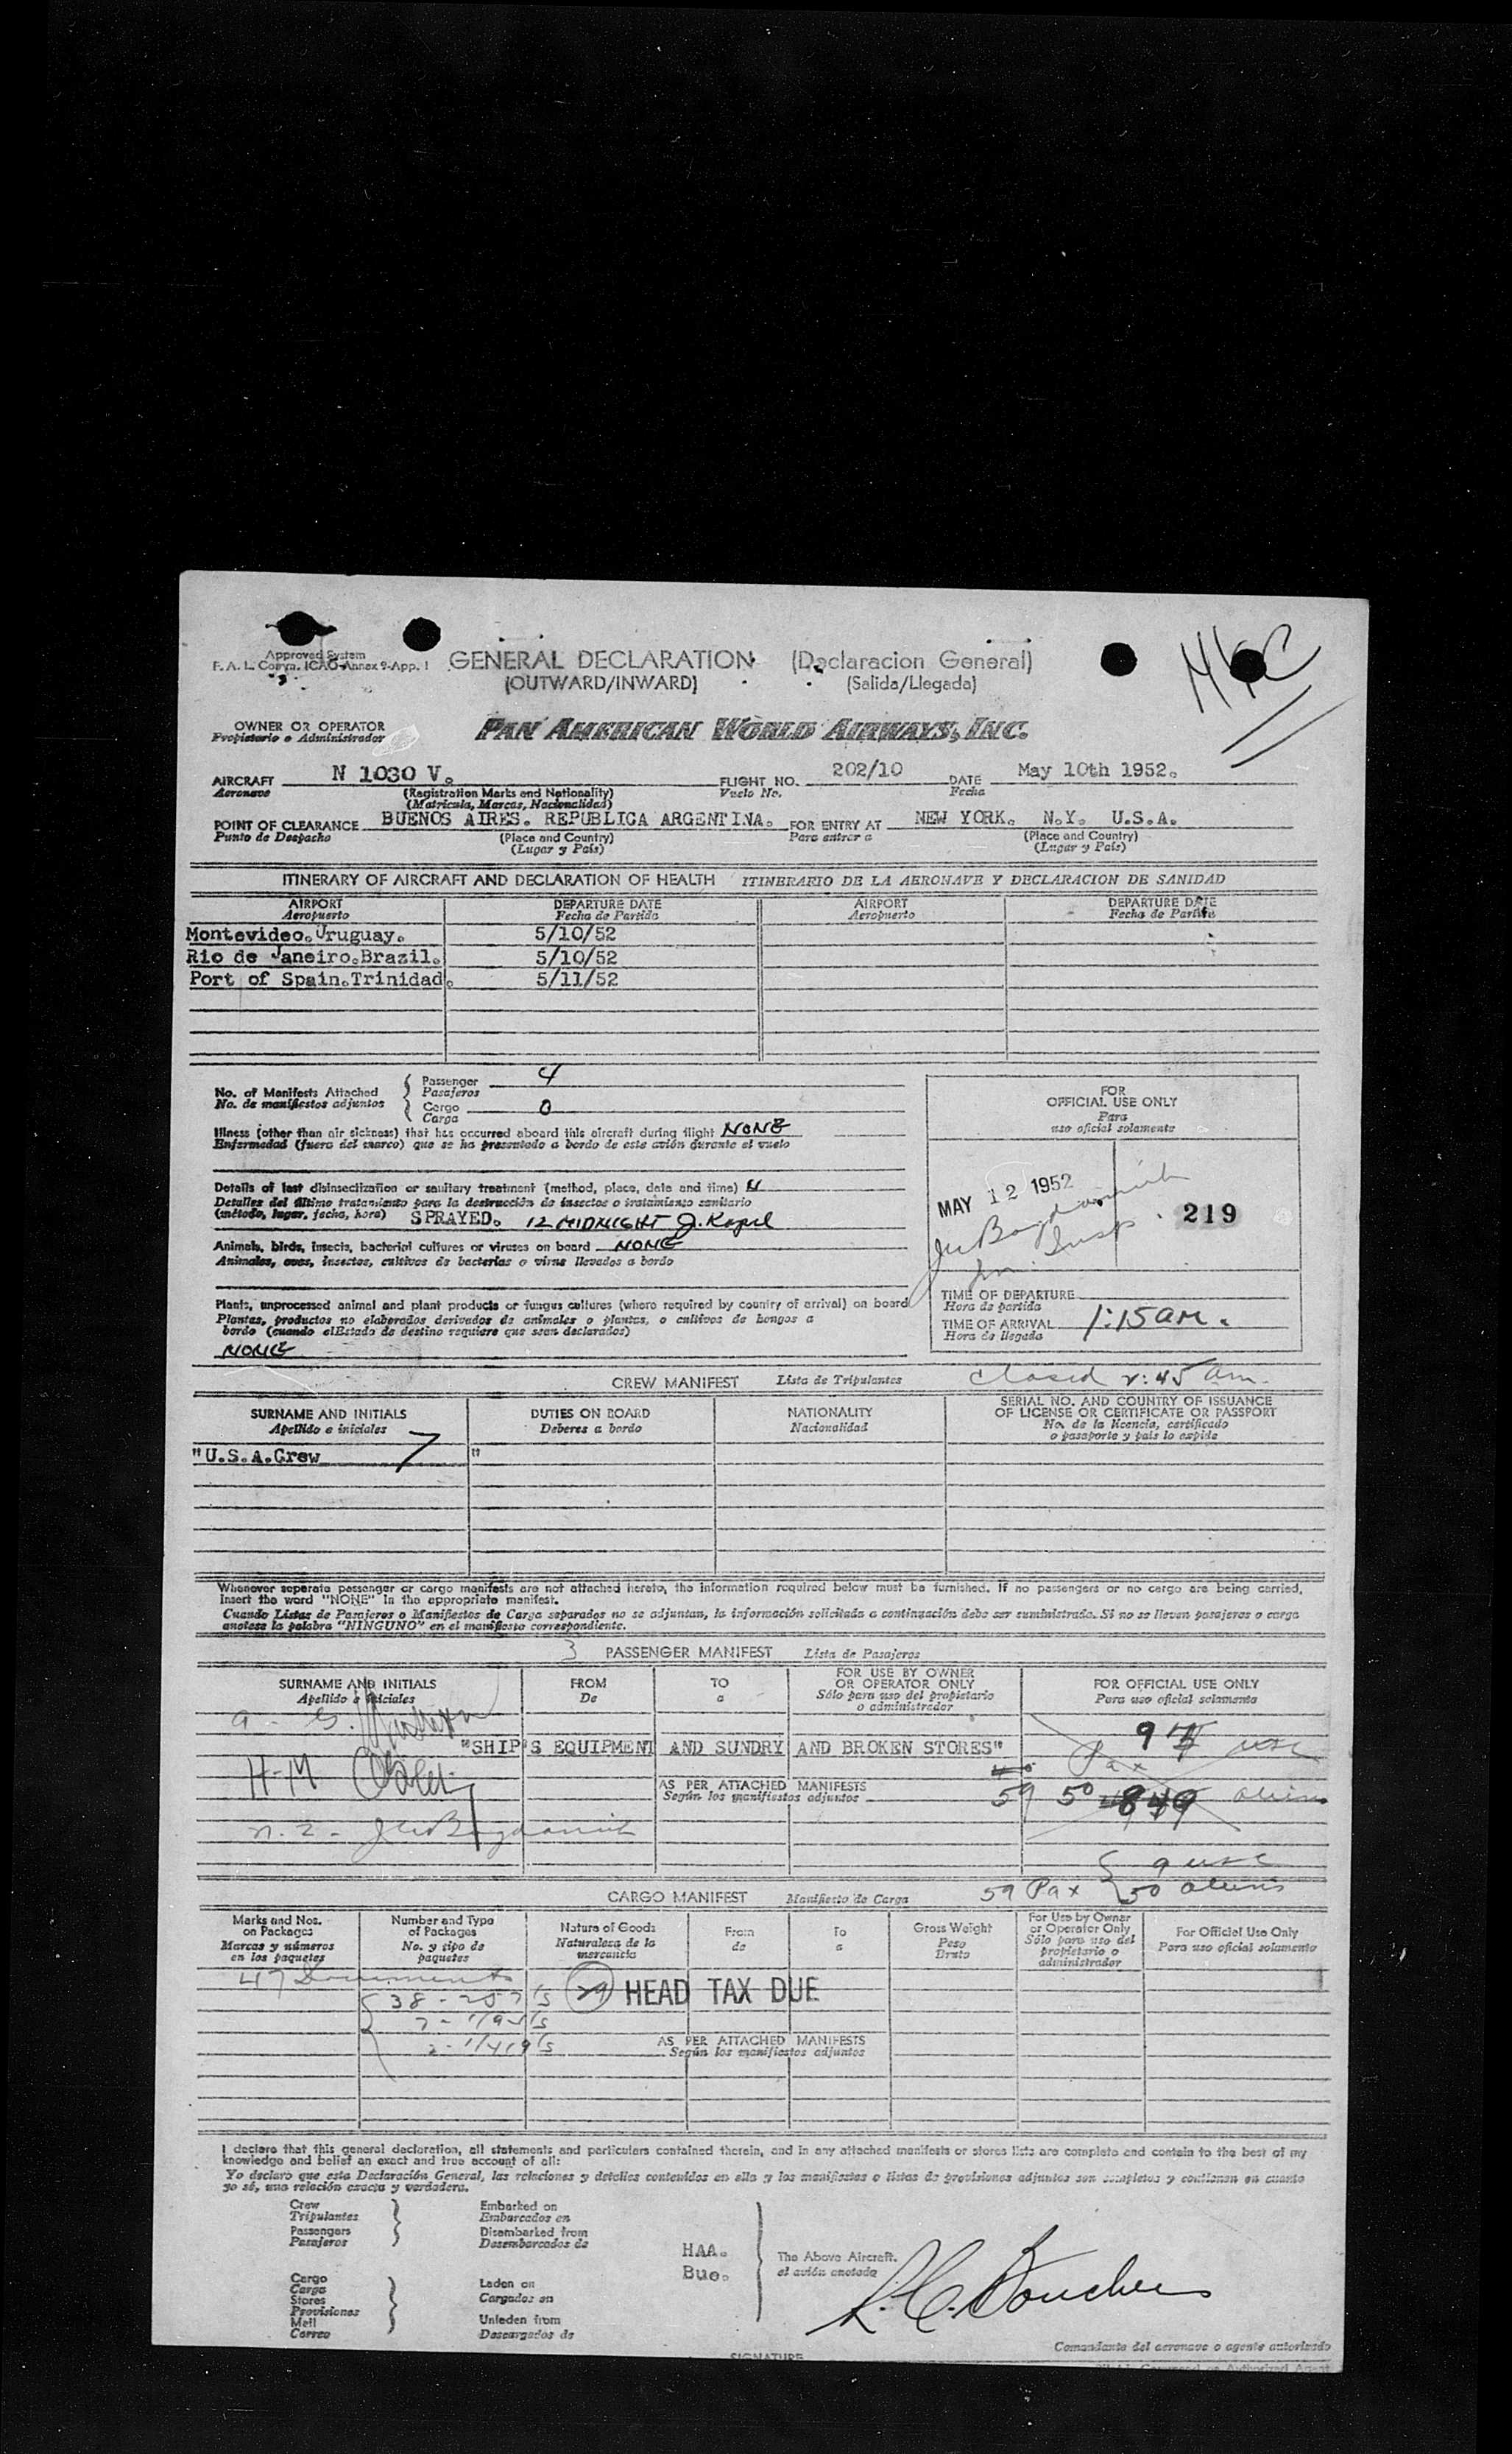 Approved System
F. A. L. Convn. ICAO-Annex 9-App. I
GENERAL DECLARATION (Declaracion General)
(OUTWARD/INWARD) (Salida/Llegada)
OWNER OR OPERATOR
Propietario o Administrador
PAN AMERICAN WORLD AIRWAYS, INC.
AIRCRAFT N 1030 V. FLIGHT NO. 202/10 DATE May 10th 1952.
Aeronave (Registration Marks and Nationality) Vuelo No. Fecha
(Matricula, Marcas, Nacionalidad)
POINT OF CLEARANCE BUENOS AIRES. REPUBLICA ARGENTINA. FOR ENTRY AT NEW YORK. N.Y. U.S.A.
Punto de Despacho (Place and Country) Para entrar a (Place and Country)
(Lugar y País) (Lugar y País)
ITINERARY OF AIRCRAFT AND DECLARATION OF HEALTH ITINERARIO DE LA AERONAVE Y DECLARACION DE SANIDAD
AIRPORT DEPARTURE DATE AIRPORT DEPARTURE DATE
Aeropuerto Fecha de Partida Aeropuerto Fecha de Partida
Montevideo.Uruguay. 5/10/52
Rio de Janeiro.Brazil. 5/10/52
Port of Spain.Trinidad. 5/11/52
No. of Manifests Attached Passenger 4
No. de manifiestos adjuntos Pasajeros
Cargo 0
Carga
FOR
OFFICIAL USE ONLY
Para
uso oficial solamente
Illness (other than air sickness) that has occurred aboard this aircraft during flight NONE
Enfermedad (fuera del mareo) que se ha presentado a bordo de este avión durante el vuelo
Details of last disinsectization or sanitary treatment (method, place, date and time)
Detalles del último tratamiento para la destrucción de insectos o tratamiento sanitario
(método, lugar, fecha, hora) SPRAYED. 12 MIDNIGHT J. Kapel
MAY 12 1952
219
Insp.
Animals, birds, insects, bacterial cultures or viruses on board NONE
Animales, aves, insectos, cultivos de bacterias o virus llevados a bordo
Plants, unprocessed animal and plant products or fungus cultures (where required by country of arrival) on board
Plantas, productos no elaborados derivados de animales o plantas, o cultivos de hongos a
bordo (cuando el Estado de destino requiere que sean declarados)
NONE
TIME OF DEPARTURE
Hora de partida
TIME OF ARRIVAL 1:15 am.
Hora de llegada
CREW MANIFEST Lista de Tripulantes closed 2:45 am.
SURNAME AND INITIALS DUTIES ON BOARD NATIONALITY SERIAL NO. AND COUNTRY OF ISSUANCE
OF LICENSE OR CERTIFICATE OR PASSPORT
Apellido e iniciales Deberes a bordo Nacionalidad No. de la licencia, certificado
o pasaporte y país lo expide
"U.S.A.Crew 7 "
Whenever seperate passenger or cargo manifests are not attached hereto, the information required below must be furnished. If no passengers or no cargo are being carried,
insert the word "NONE" in the appropriate manifest.
Cuando Listas de Pasajeros o Manifiestos de Carga separados no se adjuntan, la información solicitada a continuación debe ser suministrada. Si no se lleven pasajeros o carga
anotese la palabra "NINGUNO" en el manifiesto correspondiente.
3 PASSENGER MANIFEST Lista de Pasajeros
SURNAME AND INITIALS FROM TO FOR USE BY OWNER
OR OPERATOR ONLY FOR OFFICIAL USE ONLY
Apellido e iniciales De a Sólo para uso del propietario
o administrador Para uso oficial solamente
"SHIP'S EQUIPMENT AND SUNDRY AND BROKEN STORES"
Pax
AS PER ATTACHED MANIFESTS 59 50 aliens
Según los manifiestos adjuntos
9 usc
59 Pax 50 aliens
CARGO MANIFEST Manifiesto de Carga
Marks and Nos.
on Packages
Marcas y números
en los paquetes
Number and Type
of Packages
No. y tipo de
paquetes
Nature of Goods
Naturaleza de la
mercancía
From
de
To
a
Gross Weight
Peso
Bruto
For Use by Owner
or Operator Only
Sólo para uso del
propietario o
administrador
For Official Use Only
Para uso oficial solamente
47 Documents
29 HEAD TAX DUE
AS PER ATTACHED MANIFESTS
Según los manifiestos adjuntos
I declare that this general declaration, all statements and particulars contained therein, and in any attached manifests or stores lists are complete and contain to the best of my
knowledge and belief an exact and true account of all:
Yo declaro que esta Declaración General, las relaciones y detalles contenidos en ella y los manifiestos o listas de provisiones adjuntos son completos y contienen en cuanto
yo sé, una relación exacta y verdadera.
Crew
Tripulantes
Passengers
Pasajeros
Embarked on
Embarcados en
Disembarked from
Desembarcados de
Cargo
Carga
Stores
Provisiones
Mail
Correo
Laden on
Cargados en
Unladen from
Descargados de
HAA.
Bue.
The Above Aircraft.
el avión anotado
Comandante del aeronave o agente autorizado
SIGNATURE